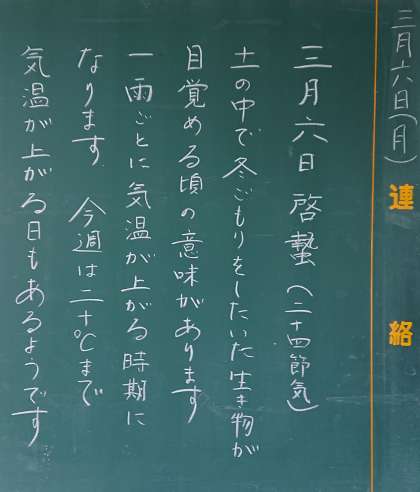 三月六日(月)
連絡
三月六日 啓蟄(二十四節気)
土の中で冬ごもりをしたいた生き物が
目覚める頃の意味があります
一雨ごとに気温が上がる時期に
なります 今週は二十℃まで
気温が上がる日もあるようです